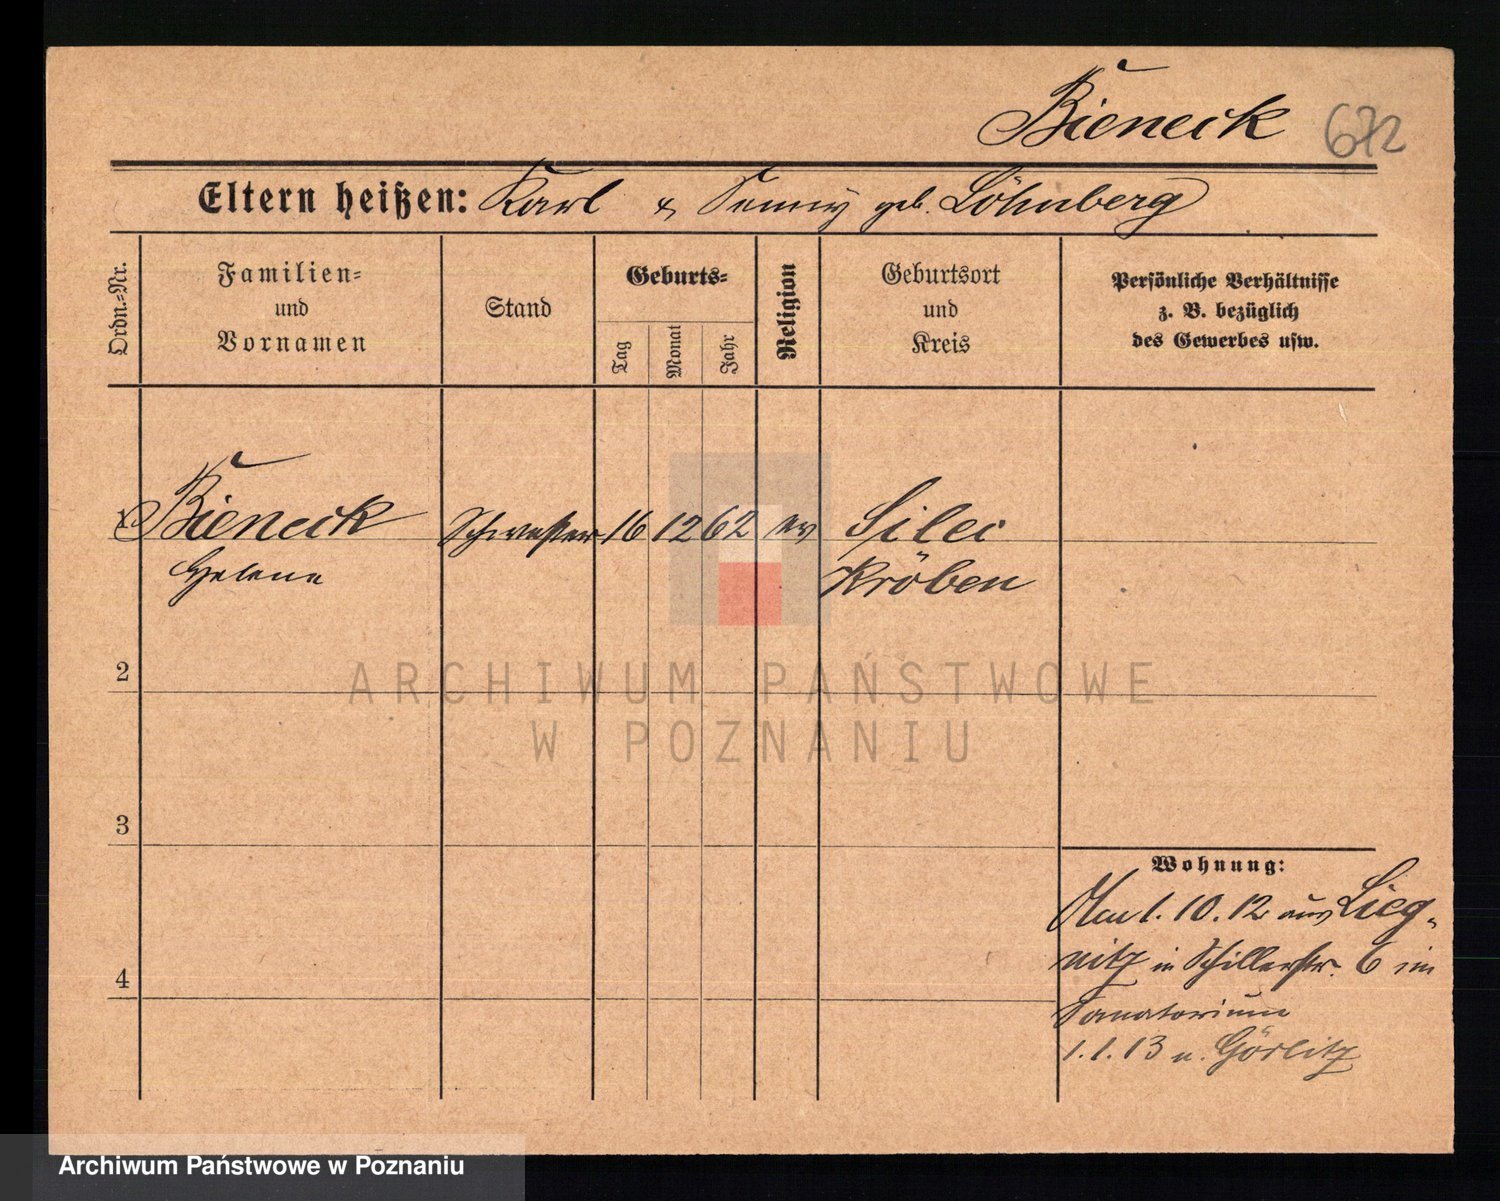 Bieneck 672
Eltern heißen: Karl & Fanny geb. Löhnberg
Ordn.=Nr.
Familien=
und
Vornamen
Stand
Geburts=
Tag
Monat
Jahr
Religion
Geburtsort
und
Kreis
Persönliche Verhältnisse
z. B. bezüglich
des Gewerbes usw.
1 Bieneck Schwester 16 12 62 ev Silei
Helene Kröben
2
3
4
Wohnung:
Am 1. 10. 12 aus Lieg-
nitz in Schillerstr. 6 im
Sanatorium
1. 1. 13 n. Görlitz
ARCHIWUM PAŃSTWOWE
W POZNANIU
Archiwum Państwowe w Poznaniu